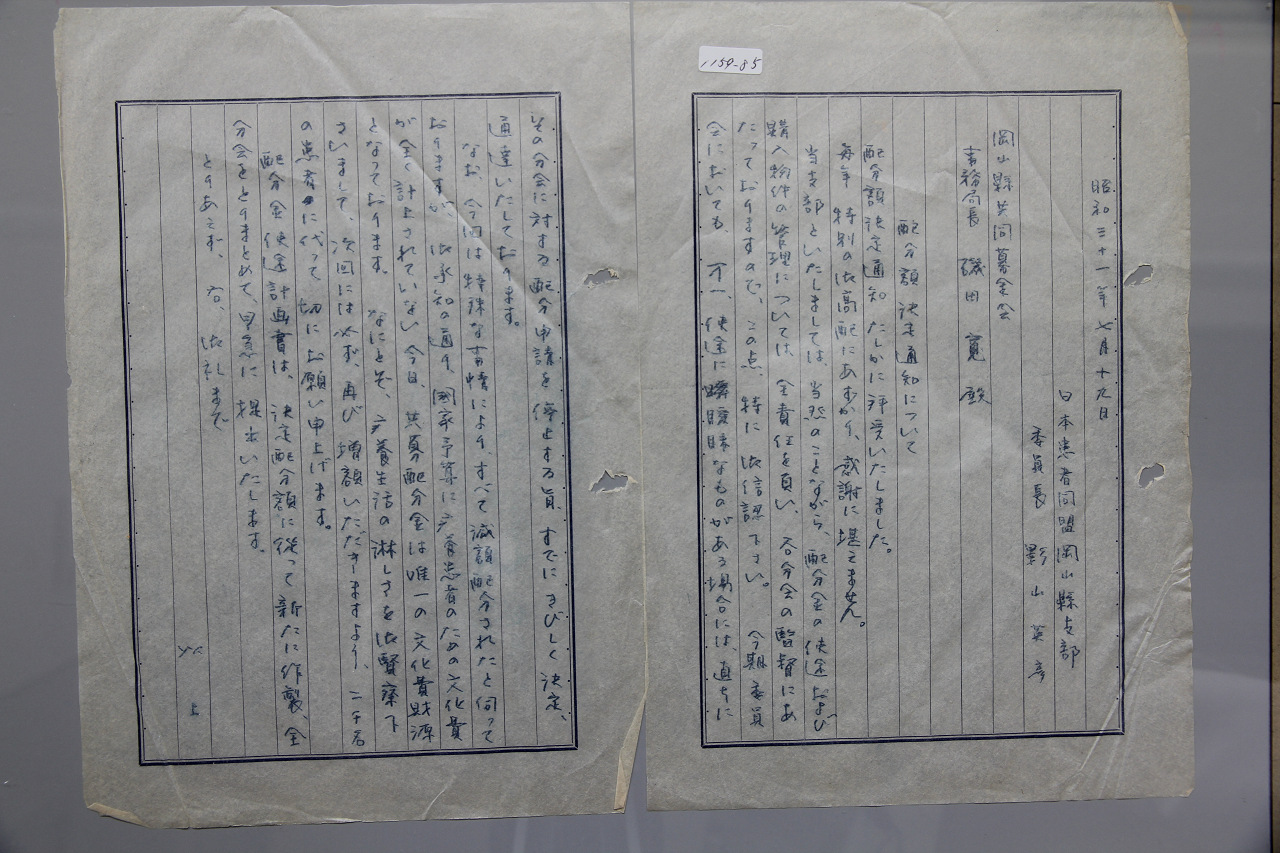 1159-85
昭和三十一年七月十九日
日本患者同盟岡山縣支部
委員長 影山英彦
岡山縣共同募金会
事務局長 磯田寛殿
配分額決定通知について
配分額決定通知たしかに拝受いたしました。
毎年特別の御高配にあずかり、感謝に堪えません。
当支部といたしましては、当然のことながら、配分金の使途および
購入物件の管理については、全責任を負い、各分会の監督にあ
たっておりますので、この点、特に御信認下さい。 今期委員
会においても、万一、使途に曖昧なものがある場合には、直ちに
その分会に対する配分申請を停止する旨、すでにきびしく決定、
通達いたしております。
なお、今回は特殊な事情により、すべて減額配分されたと伺って
おりますが、御承知の通り、国家予算に療養患者のための文化費
が全く計上されていない今日、共募配分金は唯一の文化費財源
となっております。 なにとぞ、療養生活の淋しさを御賢察下
さいまして、次回には必ず、再び増額いただきますよう、二千名
の患者に代って切にお願い申上げます。
配分金使途計画書は、決定配分額に従って新たに作製、全
分会をとりまとめて、早急に提出いたします。
とりあえず、右、御礼まで
以上